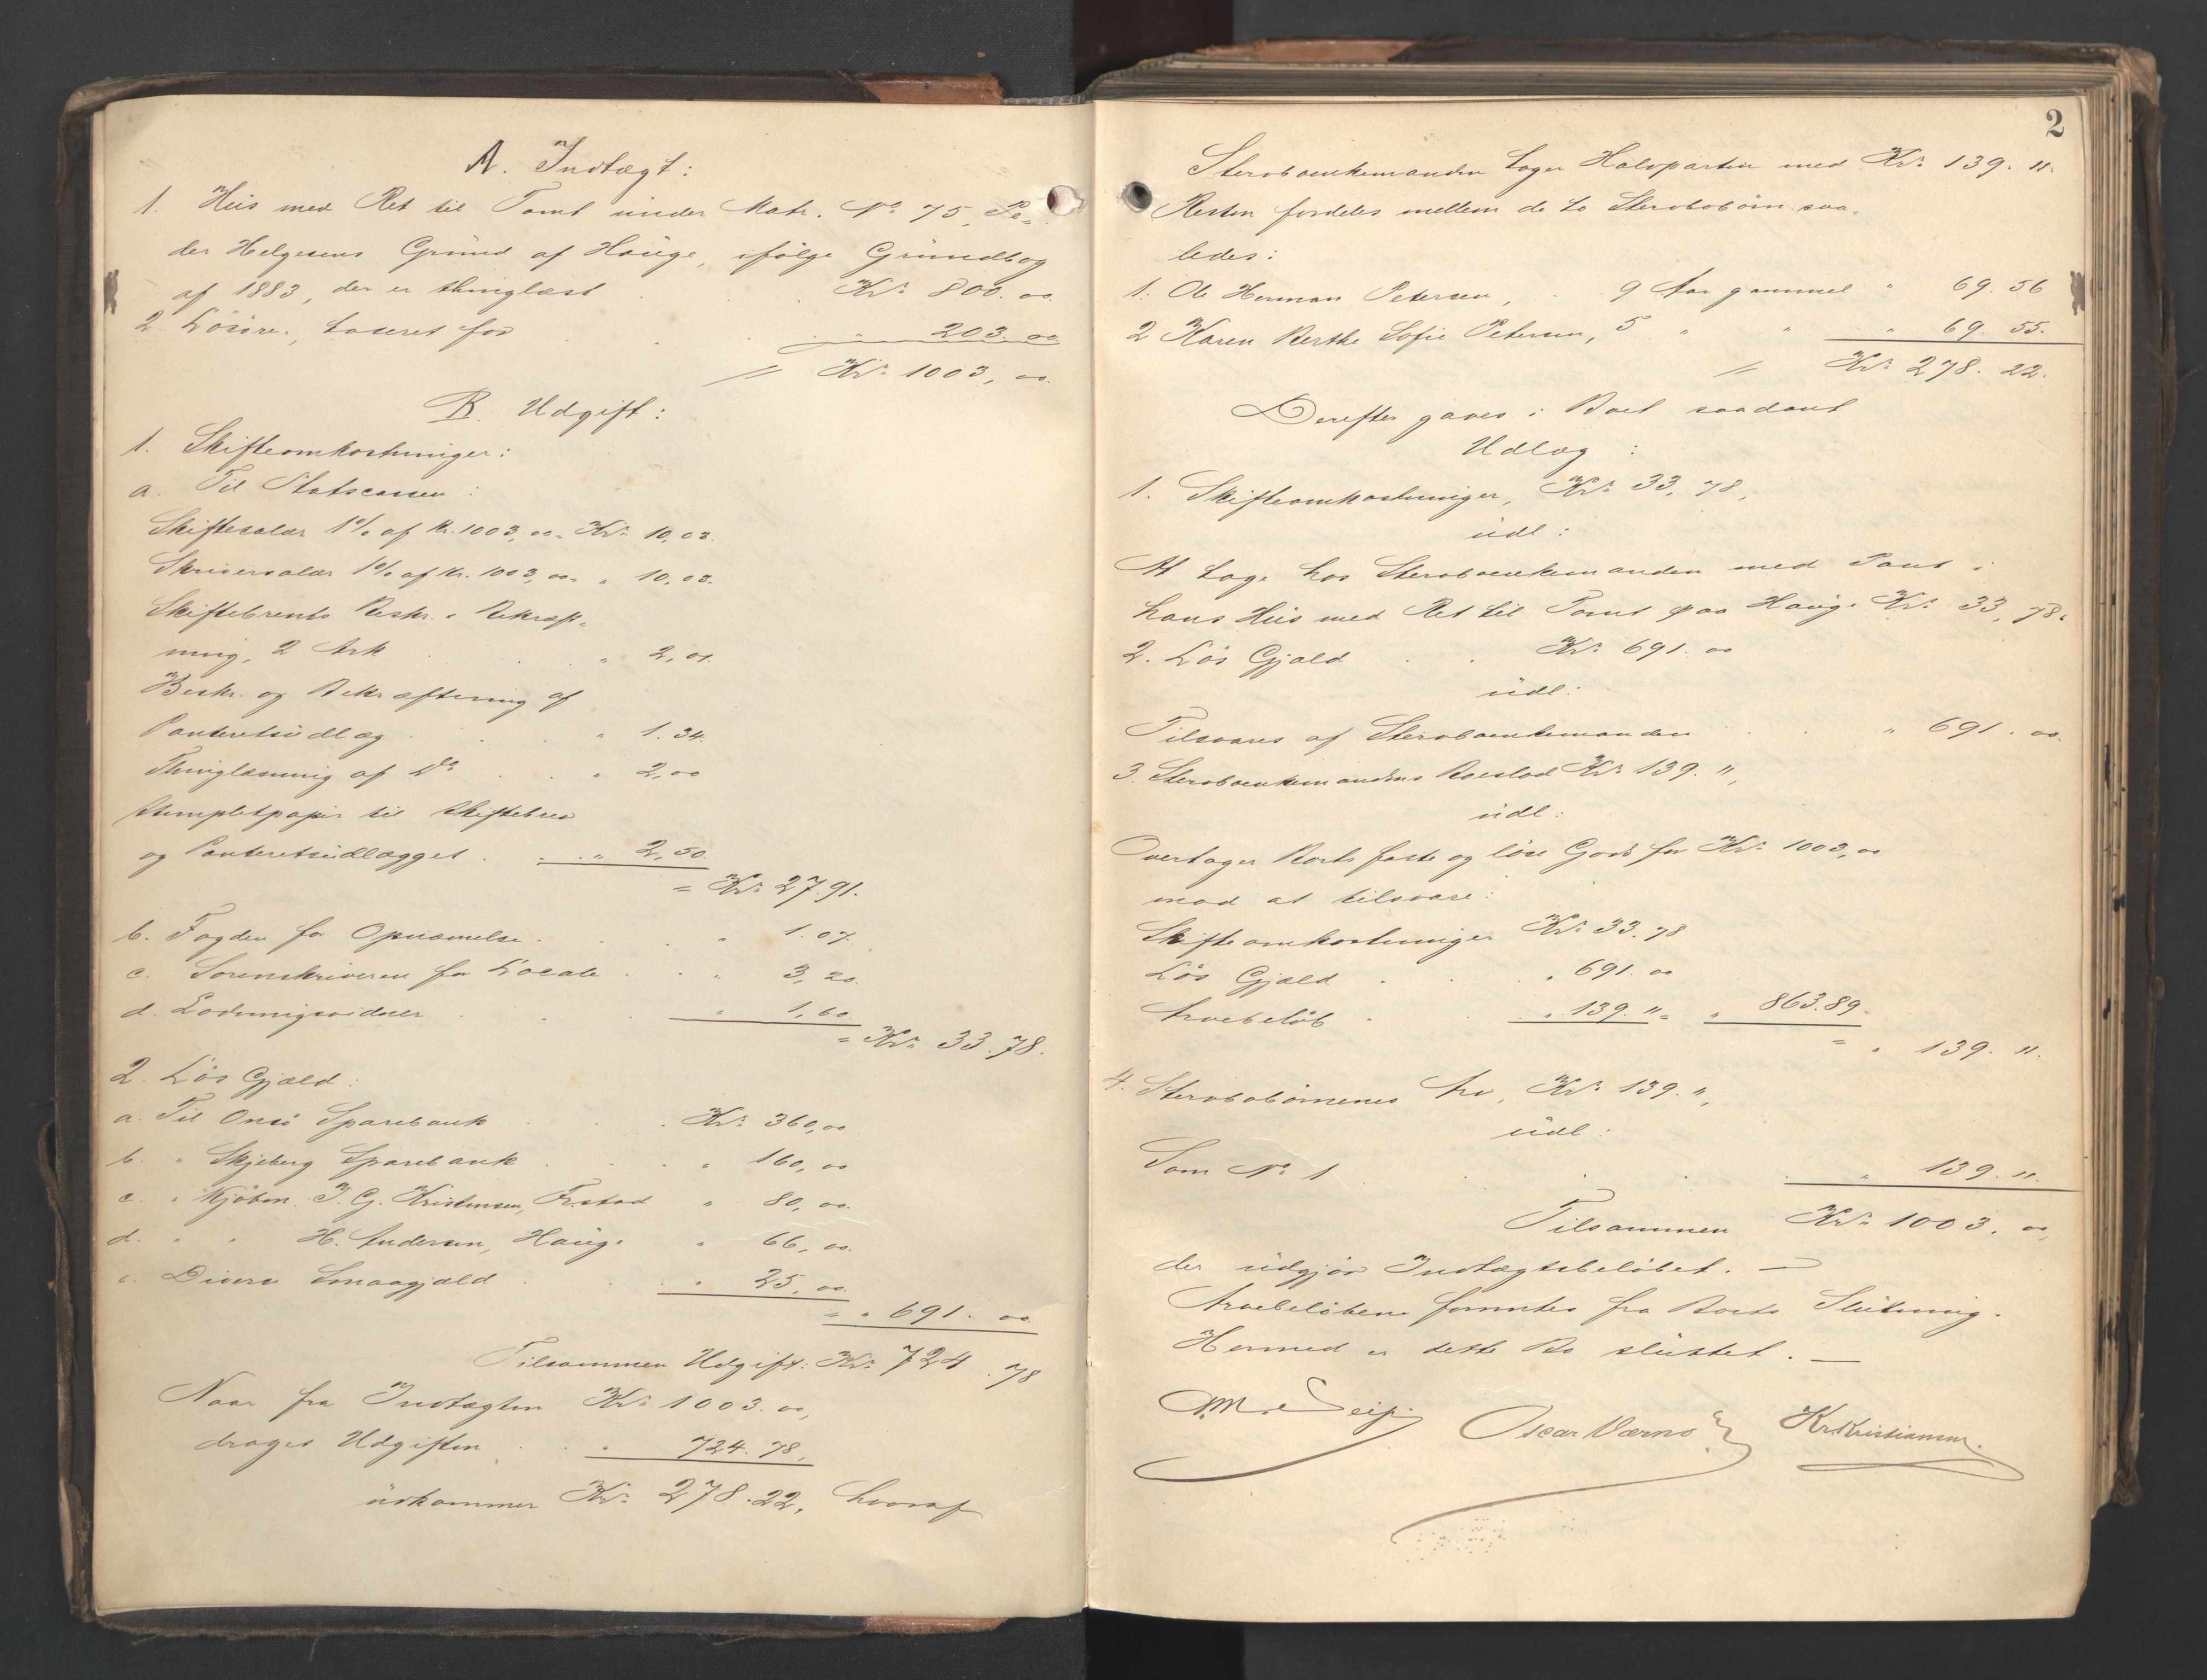 A. Indtægt:
1. Hus med Ret til Tomt under Matr. No 75, Pe-
der Helgesens Grund af Hauge, ifølge Grundbog
af 1883, der er thinglæst . . Kr. 800. 00
2. Løsøre, taxeret for . . . " 203. 00
= Kr. 1003, 00.
B. Udgift:
1. Skifteomkostninger:
a. Til Statscassen:
Skiftesalær 1% af Kr. 1003, 00 = Kr. 10,03.
Skriversalær 1% af Kr. 1003, 00 = " 10,03.
Skiftebrevets Beskr. & Bekræft-
ning, 2 Ark . . . " 2,01.
Beskr. og Bekræftning af
Panteretsudlæg . . . " 1.34.
Thinglæsning af Do . . " 2,00
Stempletpapir til Skiftebrev
og Panteretsudlægget . . . " 2,50.
= Kr. 27.91.
b. Fogden for Opnævnelse . . . " 1.07.
c. Sorenskriveren for Locale . . " 3,20.
d. Lodningsvidner . . . " 1,60.
= Kr. 33.78.
2. Løs Gjæld:
a. Til Onsø Sparebank . . . Kr. 360,00
b. " Skjeberg Sparebank . . . " 160,00
c. " Kjøbm. J. G. Kristensen, Fr.stad " 80,00.
d. " " H. Andersen, Hauge " 66,00.
e. Diverse Smaagjæld . . " 25,00.
= " 691. 00.
Tilsammen Udgift: Kr. 724.78
Naar fra Indtægten Kr. 1003. 00,
drages Udgiften . . " 724. 78,
udkommer Kr. 278.22, hvoraf
2
Stervboenkemanden tager Halvparten med Kr. 139. 11.
Resten fordeles mellem de to Stervbobørn saa-
ledes:
1. Ole Herman Petersen, . 9 Aar gammel " 69. 56
2 Karen Berthe Sofie Petersen, 5 " " " 69. 55.
= Kr. 278. 22.
Derefter gaves i Boet saadant
Udlæg:
1. Skifteomkostninger, Kr. 33, 78,
udl:
At tage hos Stervboenkemanden med Pant i
hans Hus med Ret til Tomt paa Hauge Kr. 33, 78.
2. Løs Gjæld . . Kr. 691. 00
udl:
Tilsvares af Stervboenkemanden . . " 691. 00.
3. Stervboenkemandens Boeslod Kr. 139. 11,
udl:
Overtager Boets faste og løse Gods for Kr. 1003, 00
mod at tilsvare:
Skifteomkostninger Kr. 33.78
Løs Gjæld . . " 691. 00
Arvebeløb . . " 139. 11 = " 863.89.
= " 139. 11.
4. Stervbobørnenes Arv, Kr. 139. 11,
udl:
Som No 1 . . . . " 139. 11.
Tilsammen Kr. 1003. 00,
der udgjør Indtægtsbeløbet. —
Arvebeløbene forrentes fra Boets Slutning.
Hermed er dette Bo sluttet. —
Oscar Værno Kr Kristiansen.